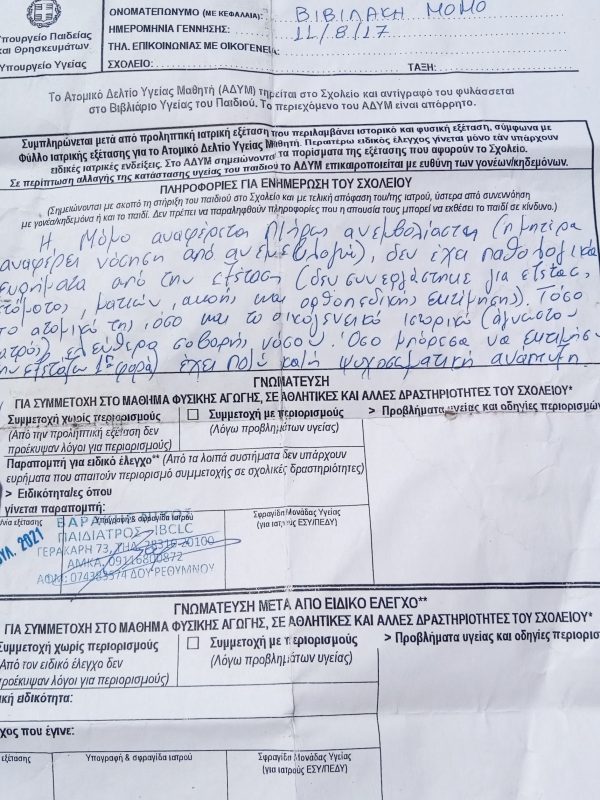 Υπουργείο Παιδείας
και Θρησκευμάτων
Υπουργείο Υγείας
ΟΝΟΜΑΤΕΠΩΝΥΜΟ (ΜΕ ΚΕΦΑΛΑΙΑ): ΒΙΒΙΛΑΚΗ ΜΟΜΟ
ΗΜΕΡΟΜΗΝΙΑ ΓΕΝΝΗΣΗΣ: 11/8/17
ΤΗΛ. ΕΠΙΚΟΙΝΩΝΙΑΣ ΜΕ ΟΙΚΟΓΕΝΕΙΑ:
ΣΧΟΛΕΙΟ: ΤΑΞΗ:
Το Ατομικό Δελτίο Υγείας Μαθητή (ΑΔΥΜ) τηρείται στο Σχολείο και αντίγραφό του φυλάσσεται
στο Βιβλιάριο Υγείας του Παιδιού. Το περιεχόμενο του ΑΔΥΜ είναι απόρρητο.
Συμπληρώνεται μετά από προληπτική ιατρική εξέταση που περιλαμβάνει ιστορικό και φυσική εξέταση, σύμφωνα με
Φύλλο ιατρικής εξέτασης για το Ατομικό Δελτίο Υγείας Μαθητή. Περαιτέρω ειδικός έλεγχος γίνεται μόνο εάν υπάρχουν
ειδικές ιατρικές ενδείξεις. Στο ΑΔΥΜ σημειώνονται τα πορίσματα της εξέτασης που αφορούν το Σχολείο.
Σε περίπτωση αλλαγής της κατάστασης υγείας του παιδιού το ΑΔΥΜ επικαιροποιείται με ευθύνη των γονέων/κηδεμόνων.
ΠΛΗΡΟΦΟΡΙΕΣ ΓΙΑ ΕΝΗΜΕΡΩΣΗ ΤΟΥ ΣΧΟΛΕΙΟΥ
(Σημειώνονται με σκοπό τη στήριξη του παιδιού στο Σχολείο και με τελική απόφαση του/της ιατρού, ύστερα από συνεννόηση
με γονέα/κηδεμόνα ή και το παιδί. Δεν πρέπει να παραληφθούν πληροφορίες που η απουσία τους μπορεί να εκθέσει το παιδί σε κίνδυνο.)
Η Μόμο αναφέρεται πλήρης ανεμβολίαστη (η μητέρα
αναφέρει νόσηση από ανεμευλογιά), δεν έχει παθολογικά
ευρήματα από την εξέταση (δεν συνεργάστηκε για εξέταση
στόματος, ματιών, ακοής και ορθοπεδικής εκτίμησης). Τόσο
το ατομικό της, όσο και το οικογενειακό ιστορικό (αγνώστου
πατρός) ελεύθερα σοβαρής νόσου. Όσο μπόρεσα να εκτιμήσω
(την εξετάζω 1η φορά) έχει πολύ καλή ψυχοσωματική ανάπτυξη.
ΓΝΩΜΑΤΕΥΣΗ
ΓΙΑ ΣΥΜΜΕΤΟΧΗ ΣΤΟ ΜΑΘΗΜΑ ΦΥΣΙΚΗΣ ΑΓΩΓΗΣ, ΣΕ ΑΘΛΗΤΙΚΕΣ ΚΑΙ ΑΛΛΕΣ ΔΡΑΣΤΗΡΙΟΤΗΤΕΣ ΤΟΥ ΣΧΟΛΕΙΟΥ*
Συμμετοχή χωρίς περιορισμούς ☐ Συμμετοχή με περιορισμούς > Προβλήματα υγείας και οδηγίες περιορισμών
(Από την προληπτική εξέταση δεν (Λόγω προβλημάτων υγείας)
προέκυψαν λόγοι για περιορισμούς)
Παραπομπή για ειδικό έλεγχο** (Από τα λοιπά συστήματα δεν υπάρχουν
ευρήματα που απαιτούν περιορισμό συμμετοχής σε σχολικές δραστηριότητες)
> Ειδικότητα/ες όπου
γίνεται παραπομπή:
εξέτασης Υπογραφή & σφραγίδα ιατρού Σφραγίδα Μονάδας Υγείας
(για ιατρούς ΕΣΥ/ΠΕΔΥ)
2021
ΠΑΙΔΙΑΤΡΟΣ - IBCLC
ΓΕΡΑΚΑΡΗ 73, ΤΗΛ. 28310-20100
ΑΜΚΑ. 09116800872
ΑΦΜ: 074389574 ΔΟΥ ΡΕΘΥΜΝΟΥ
ΓΝΩΜΑΤΕΥΣΗ ΜΕΤΑ ΑΠΟ ΕΙΔΙΚΟ ΕΛΕΓΧΟ**
ΓΙΑ ΣΥΜΜΕΤΟΧΗ ΣΤΟ ΜΑΘΗΜΑ ΦΥΣΙΚΗΣ ΑΓΩΓΗΣ, ΣΕ ΑΘΛΗΤΙΚΕΣ ΚΑΙ ΑΛΛΕΣ ΔΡΑΣΤΗΡΙΟΤΗΤΕΣ ΤΟΥ ΣΧΟΛΕΙΟΥ*
Συμμετοχή χωρίς περιορισμούς ☐ Συμμετοχή με περιορισμούς > Προβλήματα υγείας και οδηγίες περιορισ
(Από τον ειδικό έλεγχο δεν (Λόγω προβλημάτων υγείας)
προέκυψαν λόγοι για περιορισμούς)
ική ειδικότητα:
χος που έγινε:
εξέτασης Υπογραφή & σφραγίδα ιατρού Σφραγίδα Μονάδας Υγείας
(για ιατρούς ΕΣΥ/ΠΕΔΥ)